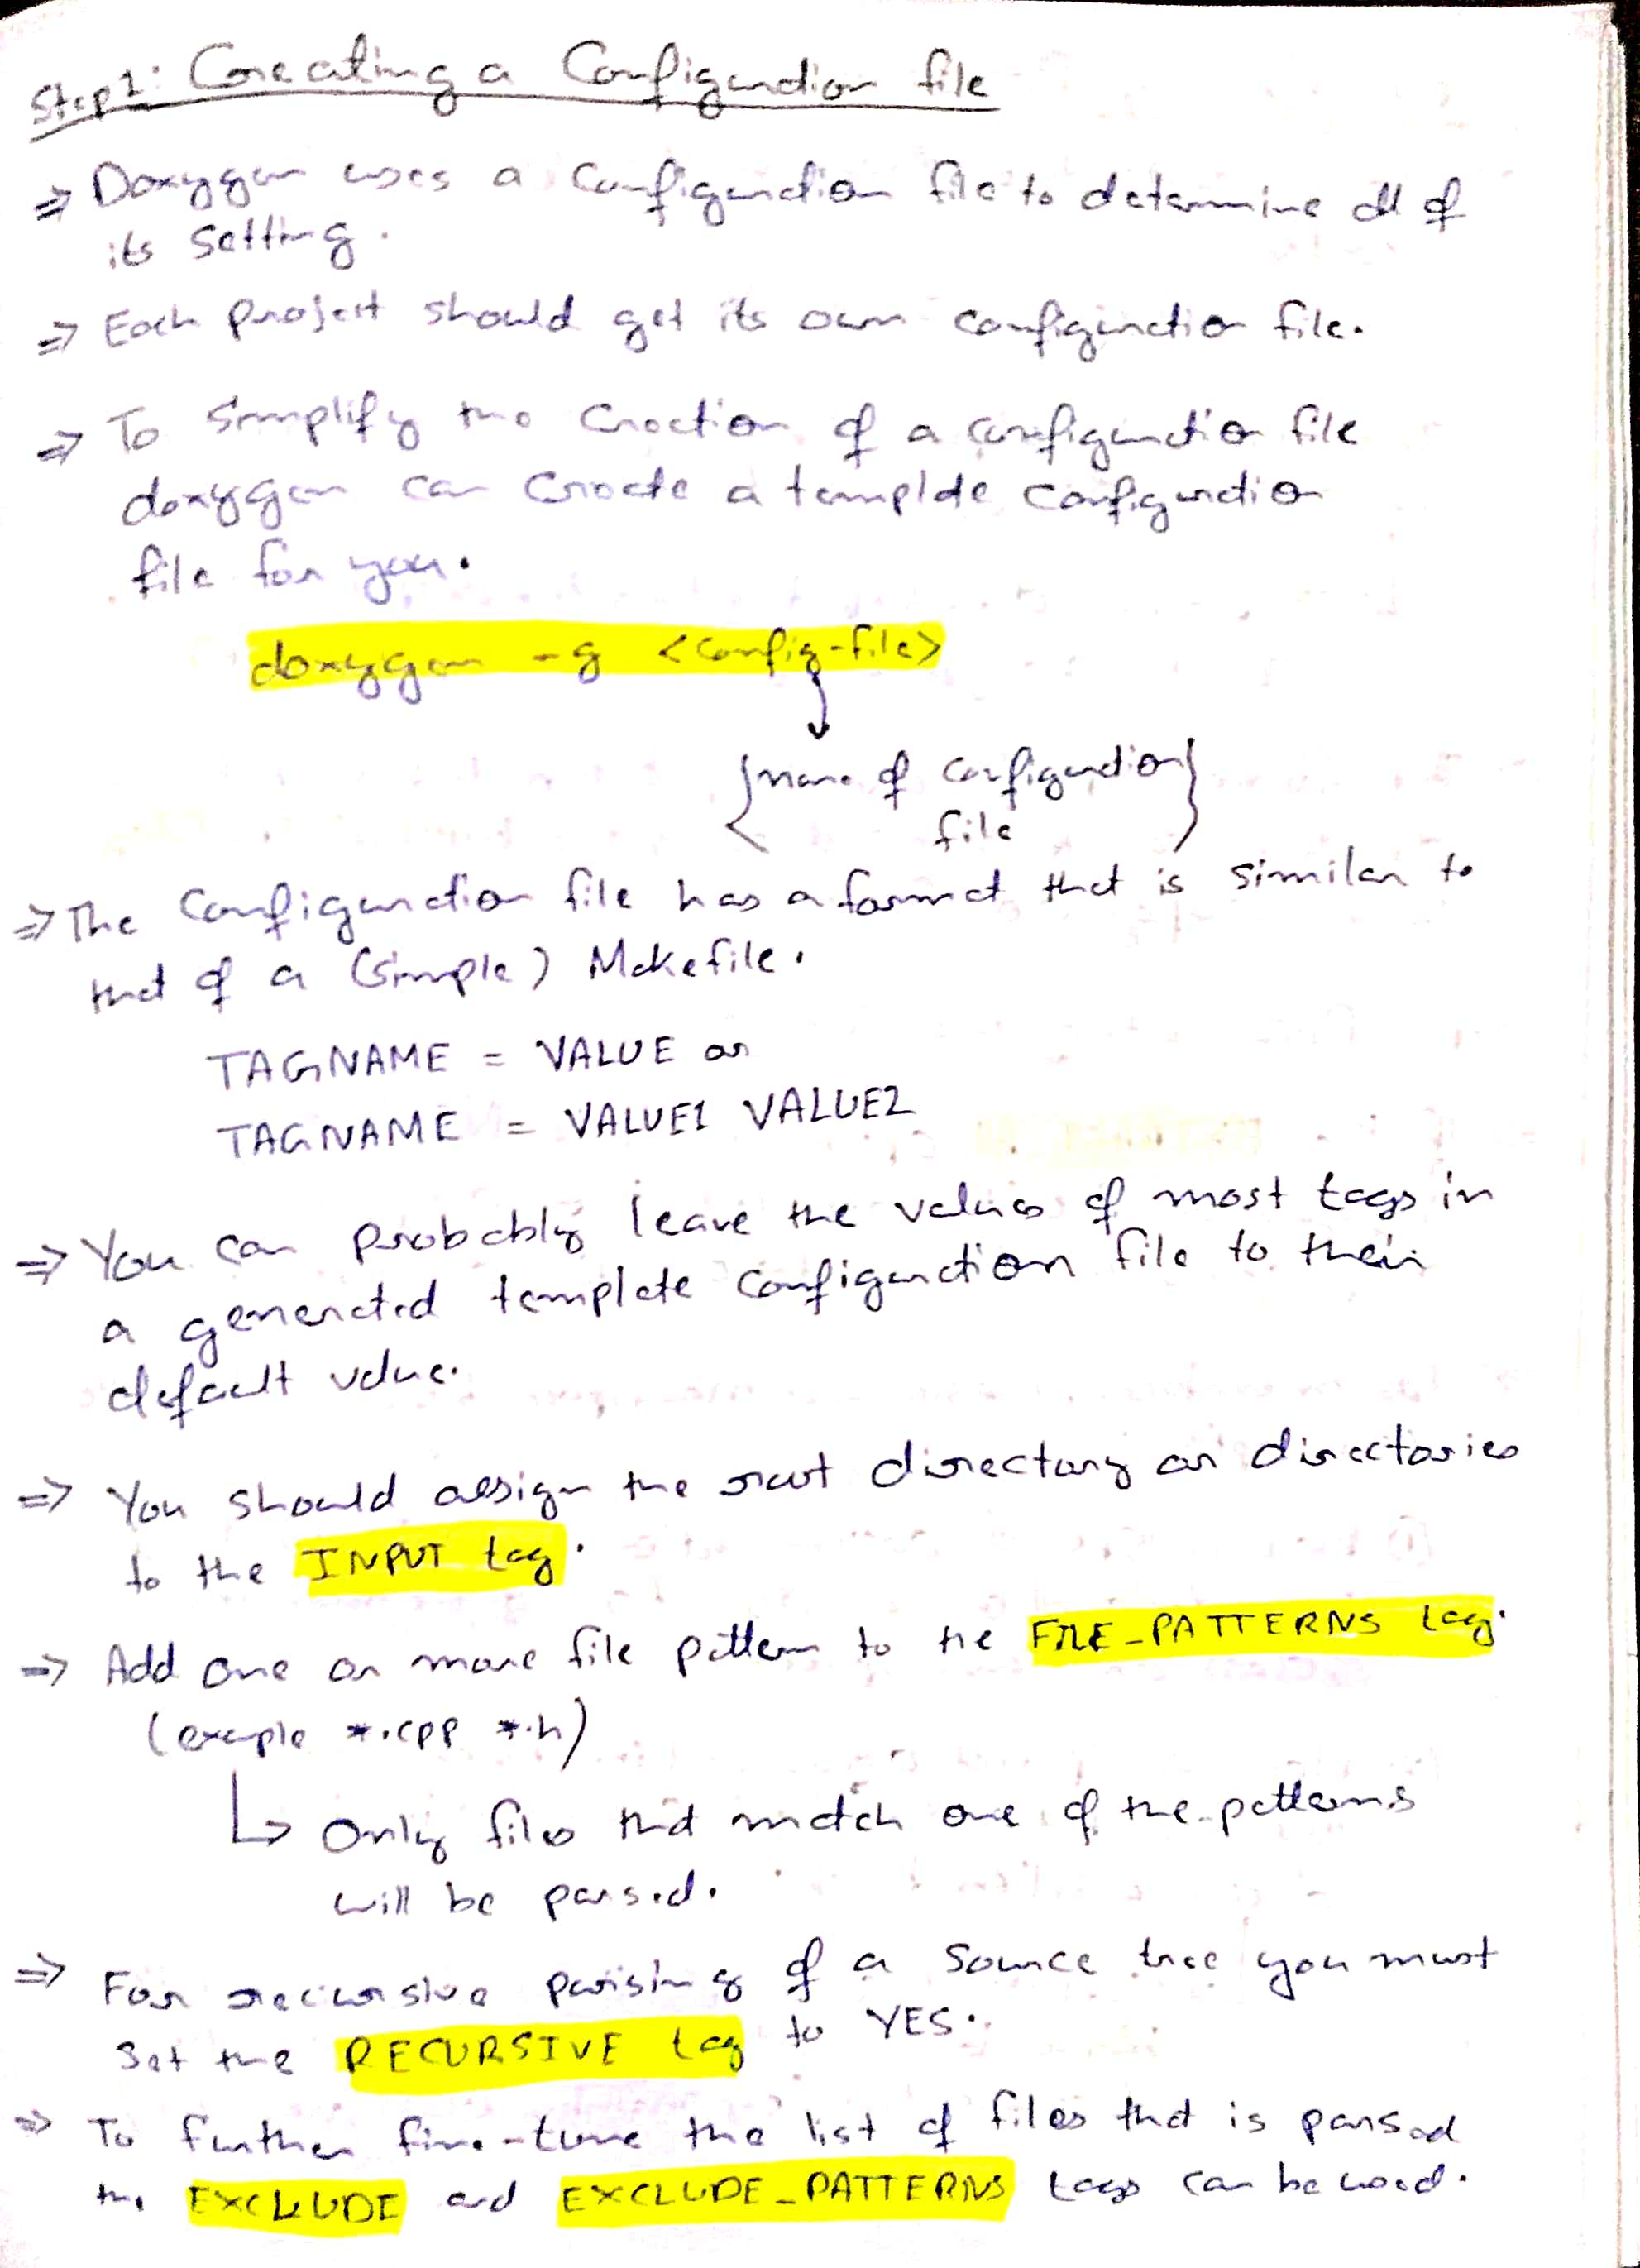 Step 1: Creating a Configuration file
⇒ Doxygen uses a configuration file to determine all of
its setting.
⇒ Each project should get its own configuration file.
⇒ To simplify the creation of a configuration file
doxygen can create a template configuration
file for you.
doxygen -g <config-file>
{name of configuration}
file
⇒ The configuration file has a format that is similar to
that of a (simple) Makefile.
TAGNAME = VALUE or
TAGNAME = VALUE1 VALUE2
⇒ You can probably leave the values of most tags in
a generated template configuration file to their
default value.
⇒ You should assign the root directory or directories
to the INPUT tag.
⇒ Add one or more file pattern to the FILE_PATTERNS tag.
(example *.cpp *.h)
↳ Only files that match one of the patterns
will be parsed.
⇒ For recursive parsing of a source tree you must
set the RECURSIVE tag to YES.
⇒ To further fine-tune the list of files that is parsed
the EXCLUDE and EXCLUDE_PATTERNS tags can be used.